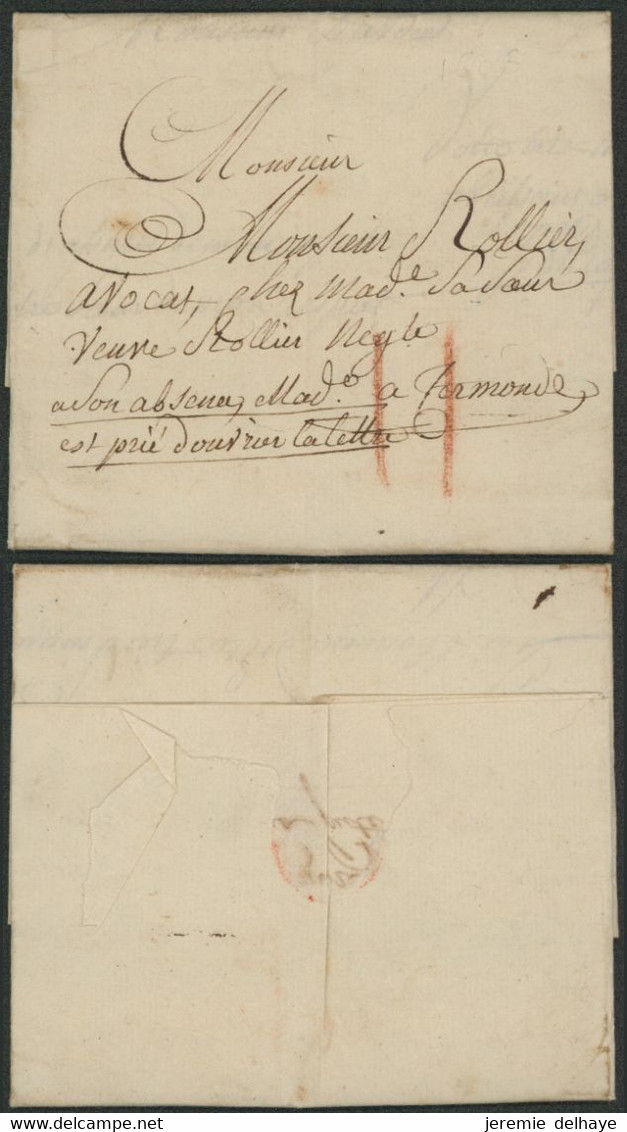 Monsieur
Monsieur Rollier,
avocat, chez mad.e Sa Sœur
veuve Rollier Neg.te
a Son absence, Mad.e a Termonde
est prié d'ouvrier la lettre
jeremie delhaye